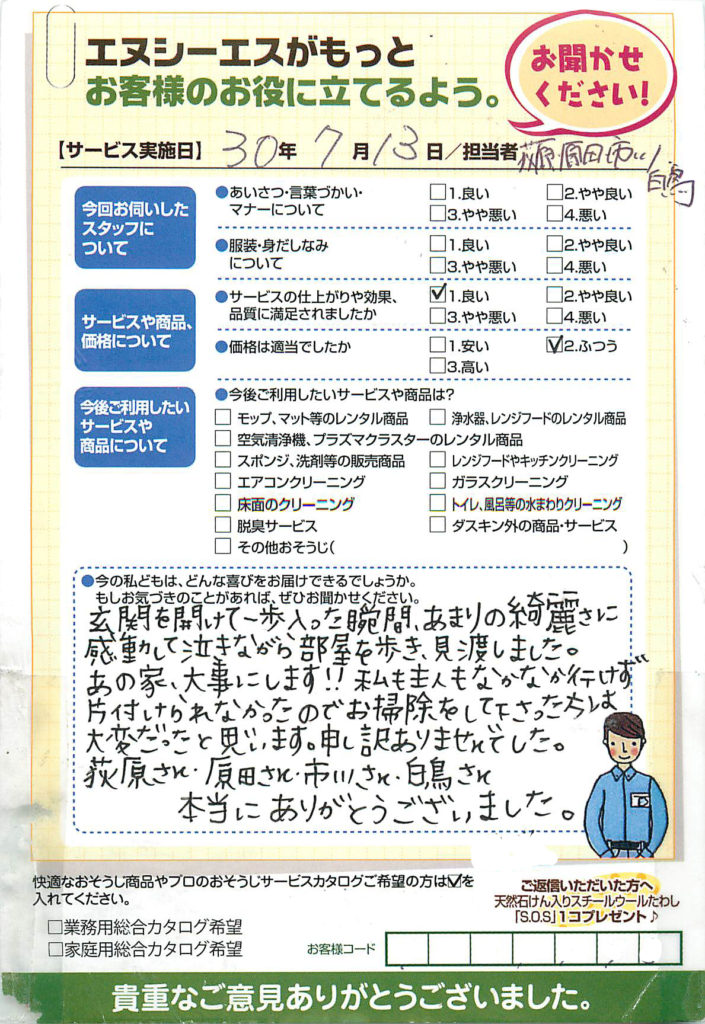 エヌシーエスがもっと
お客様のお役に立てるよう。
お聞かせ
ください!
【サービス実施日】 30年 7月13日/担当者 荻原 原田 市川 白鳥
今回お伺いした
スタッフに
ついて
●あいさつ・言葉づかい・
マナーについて
□1.良い □2.やや良い
□3.やや悪い □4.悪い
●服装・身だしなみ
について
□1.良い □2.やや良い
□3.やや悪い □4.悪い
サービスや商品、
価格について
●サービスの仕上がりや効果、
品質に満足されましたか
☑1.良い □2.やや良い
□3.やや悪い □4.悪い
●価格は適当でしたか
□1.安い ☑2.ふつう
□3.高い
今後ご利用したい
サービスや
商品について
●今後ご利用したいサービスや商品は?
□ モップ、マット等のレンタル商品 □ 浄水器、レンジフードのレンタル商品
□ 空気清浄機、プラズマクラスターのレンタル商品
□ スポンジ、洗剤等の販売商品 □ レンジフードやキッチンクリーニング
□ エアコンクリーニング □ ガラスクリーニング
□ 床面のクリーニング □ トイレ、風呂等の水まわりクリーニング
□ 脱臭サービス □ ダスキン外の商品・サービス
□ その他おそうじ( )
●今の私どもは、どんな喜びをお届けできるでしょうか。
もしお気づきのことがあれば、ぜひお聞かせください。
玄関を開けて一歩入った瞬間、あまりの綺麗さに
感動して泣きながら部屋を歩き、見渡しました。
あの家、大事にします!! 私も主人もなかなか行けず
片付けられなかったのでお掃除をして下さった方々は
大変だったと思います。申し訳ありませんでした。
荻原さん・原田さん・市川さん・白鳥さん
本当にありがとうございました。
快適なおそうじ商品やプロのおそうじサービスカタログご希望の方は☑を
入れてください。
□業務用総合カタログ希望
□家庭用総合カタログ希望
お客様コード
ご返信いただいた方へ
天然石けん入りスチールウールたわし
「S.O.S」1コプレゼント♪
貴重なご意見ありがとうございました。